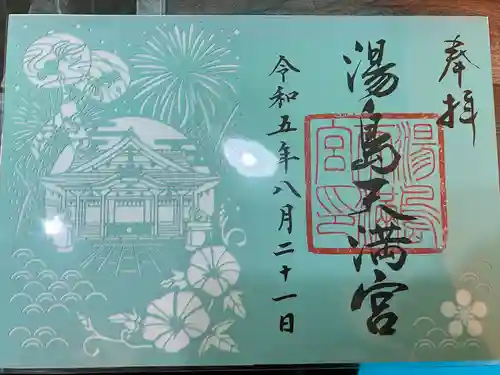 奉拝
湯島天満宮
令和五年八月二十一日